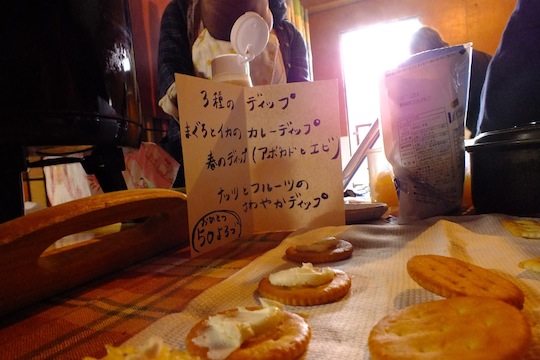 3種の ディップ
まぐろとイカのカレーディップ
春のディップ(アボカドとエビ)
ナッツとフルーツの
さわやかディップ
おひとつ
50よろづ